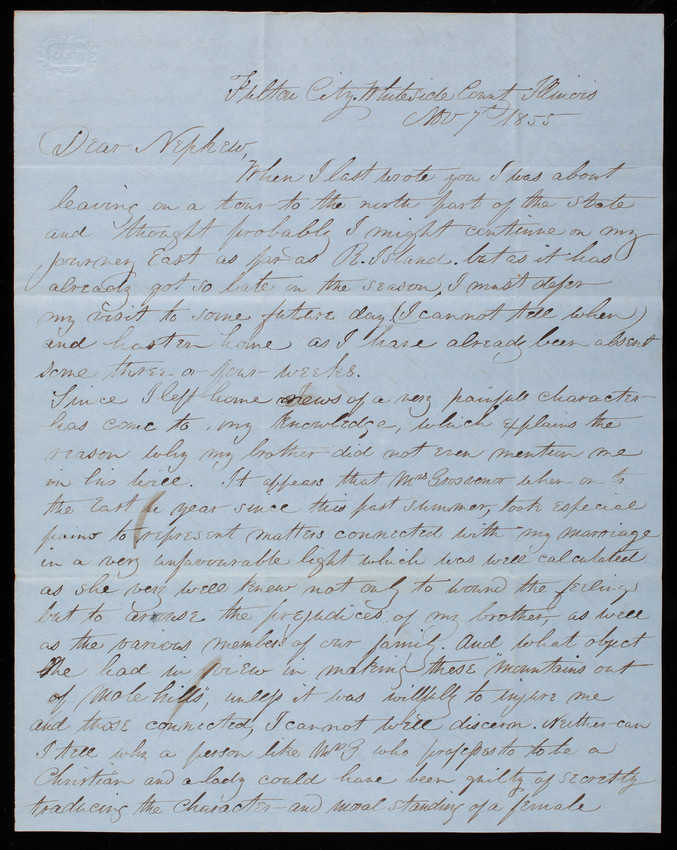 Fulton City. Whiteside County Illinois
Nov 7th 1855
Dear Nephew,
When I last wrote you I was about
leaving on a tour to the north part of the state
and thought probably I might continue on my
journey East as far as R. Island. but as it has
already got so late in the season, I must defer
my visit to some future day (I cannot tell when)
and hasten home as I have already been absent
some three or four weeks.
Since I left home news of a very painfull character
has come to my knowledge, which explains the
reason why my brother did not even mention me
in his will. It appears that Mrs Grosvenor when on to
the East a year since this past summer, took especial
pains to represent matters connected with my marriage
in a very unfavourable light which was well calculated
as she very well knew not only to wound the feelings
but to arouse the prejudices of my brother, as well
as the various members of our family. And what object
she had in view in making these "mountains out
of mole hills", unless it was willfully to injure me
and those connected, I cannot well discern. Neither can
I tell why a person like Mrs. G who professes to be a
Christian and a lady could have been guilty of secretly
traducing the character and moral standing of a female